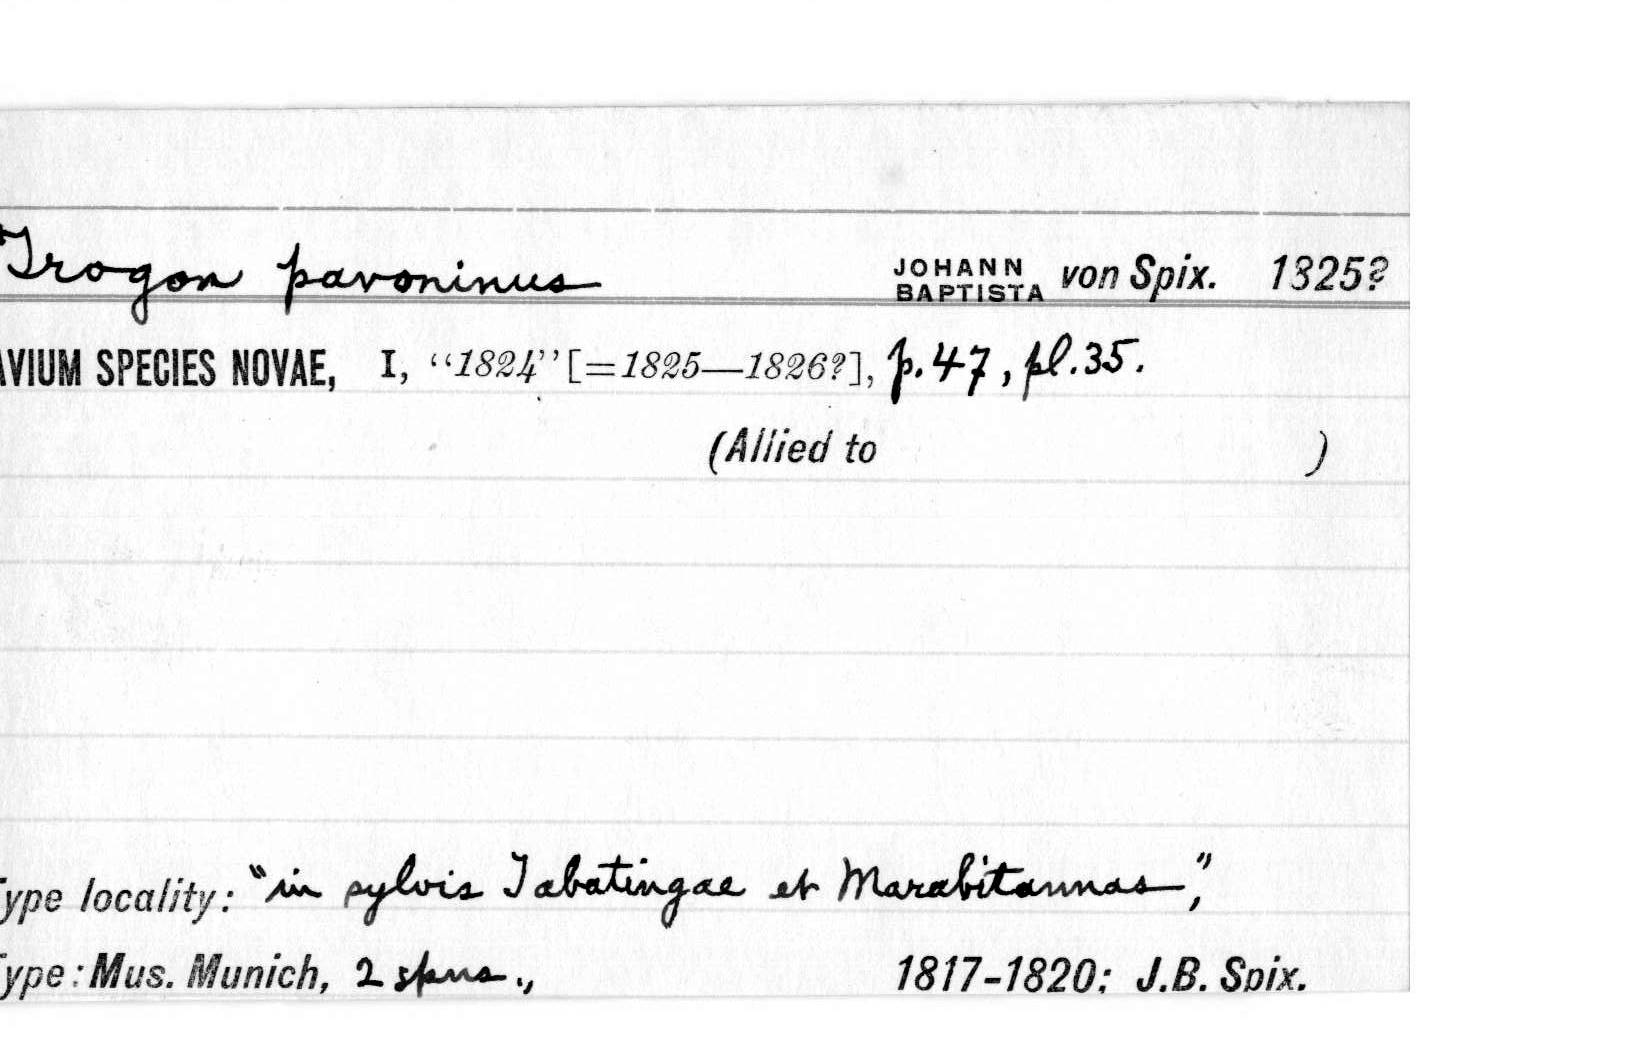 Trogon pavoninus JOHANN BAPTISTA von Spix. 1825?
AVIUM SPECIES NOVAE, I, “1824” [=1825—1826?], p.47, pl.35.
(Allied to )
Type locality: "in sylvis Tabatingae et Marabitannas",
Type: Mus. Munich, 2 spms., 1817-1820; J.B. Spix.